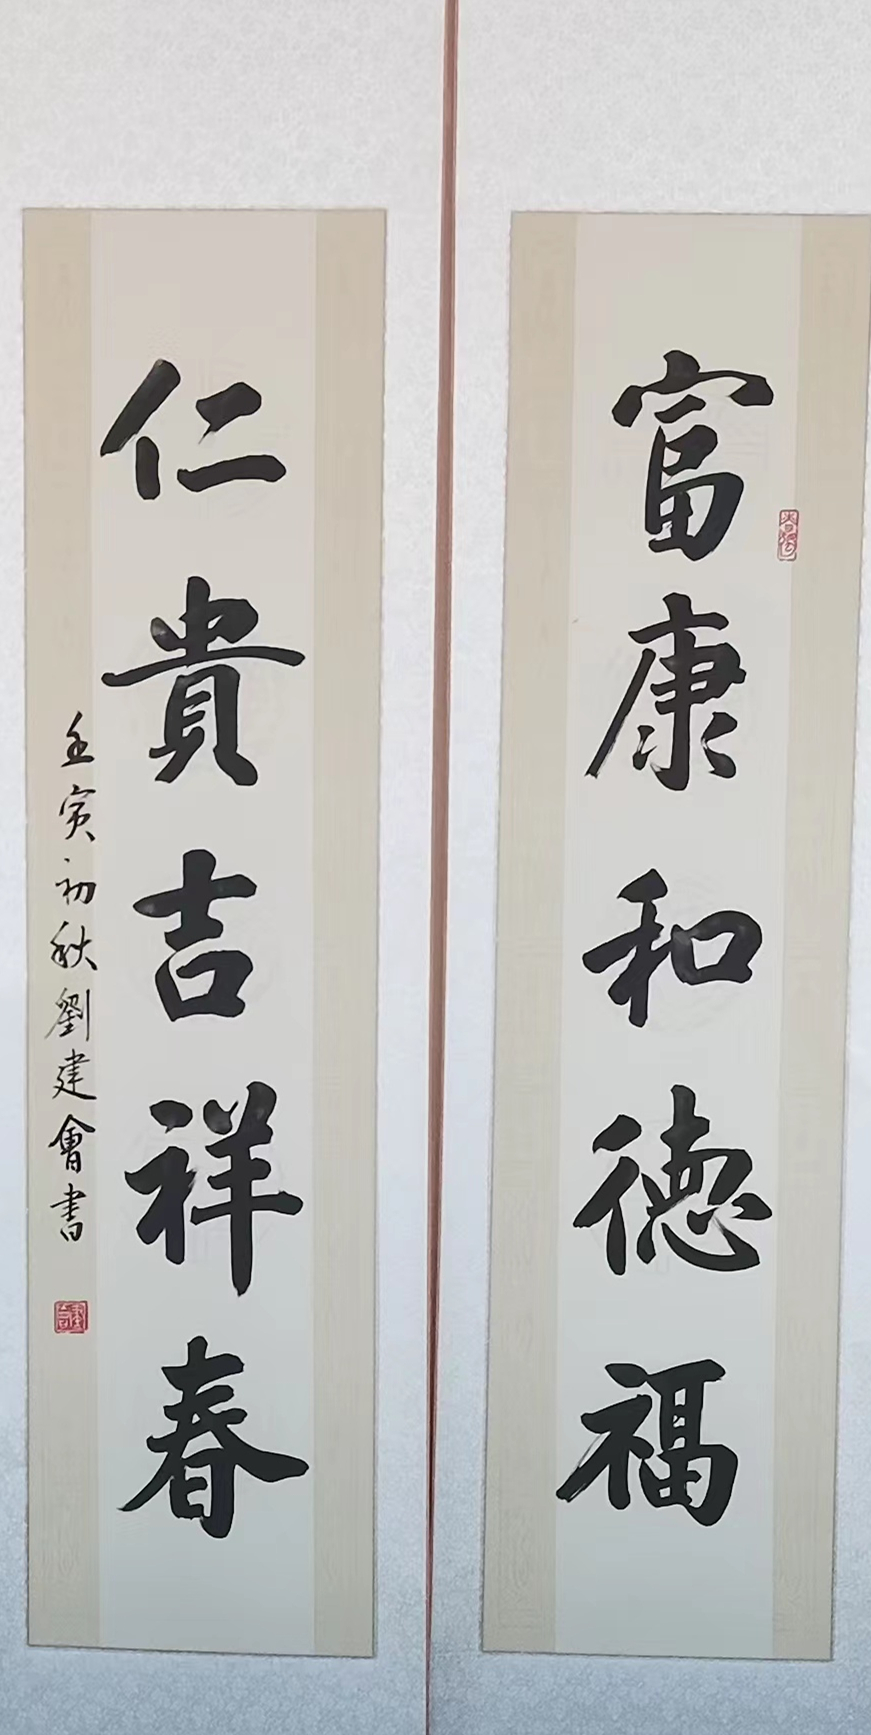 富康和德福
仁貴吉祥春
壬寅初秋劉建會書